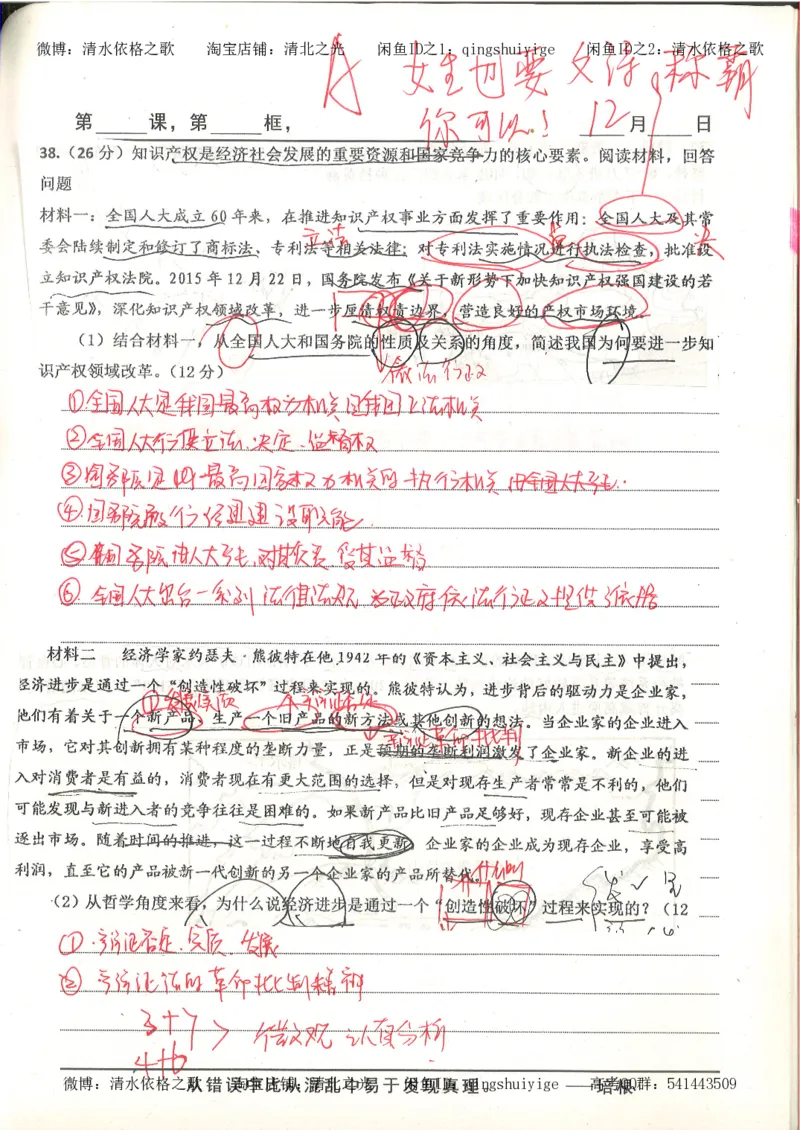 微博：清水依格之歌 淘宝店铺：清北之光 闲鱼ID之1：qingshuiyige 闲鱼ID之2：清水依格之歌
A 女生也要文综称霸
你可以！ 12
第 课，第 框， 月 日
38.（26分）知识产权是经济社会发展的重要资源和国家竞争力的核心要素。阅读材料，回答
问题
材料一：全国人大成立60年来，在推进知识产权事业方面发挥了重要作用：全国人大及其常
立法
委会陆续制定和修订了商标法、专利法等相关法律；对专利法实施情况进行执法检查，批准设
立知识产权法院。2015年12月22日，国务院发布《关于新形势下加快知识产权强国建设的若
干意见》，深化知识产权领域改革，进一步厘清权责边界，营造良好的产权市场环境。
（1）结合材料一，从全国人大和国务院的性质及关系的角度，简述我国为何要进一步知
识产权领域改革。（12分）
依法行政
①全国人大是我国最高权力机关 是我国立法机关
②全国人大行使立法、决定、监督权
③国务院是我国最高国家权力机关的执行机关 由全国人大产生
④国务院履行经济建设职能
⑤国务院由人大产生，对其负责，受其监督
⑥全国人大出台一系列法律法规 为政府依法行政提供了依据
材料二 经济学家约瑟夫·熊彼特在他1942年的《资本主义、社会主义与民主》中提出，
经济进步是通过一个“创造性破坏”过程来实现的。熊彼特认为，进步背后的驱动力是企业家，
他们有着关于一个新产品、生产一个旧产品的新方法或其他创新的想法。当企业家的企业进入
市场，它对其创新拥有某种程度的垄断力量，正是预期的垄断利润激发了企业家。新企业的进
入对消费者是有益的，消费者现在有更大范围的选择，但是对现存生产者常常是不利的，他们
可能发现与新进入者的竞争往往是困难的。如果新产品比旧产品足够好，现存企业甚至可能被
逐出市场。随着时间的推进，这一过程不断地自我更新。企业家的企业成为现存企业，享受高
利润，直至它的产品被新一代创新的另一个企业家的产品所替代。
（2）从哲学角度来看，为什么说经济进步是通过一个“创造性破坏”过程来实现的？（12
①辩证否定、实质、发展
②辩证法的革命批判精神
3+7
4+6 > 微观 认真分析
微博：清水依格之歌 淘宝店铺：清北之光 闲鱼ID：qingshuiyige 高考QQ群：541443509
从错误中比从混乱中易于发现真理。 ——培根